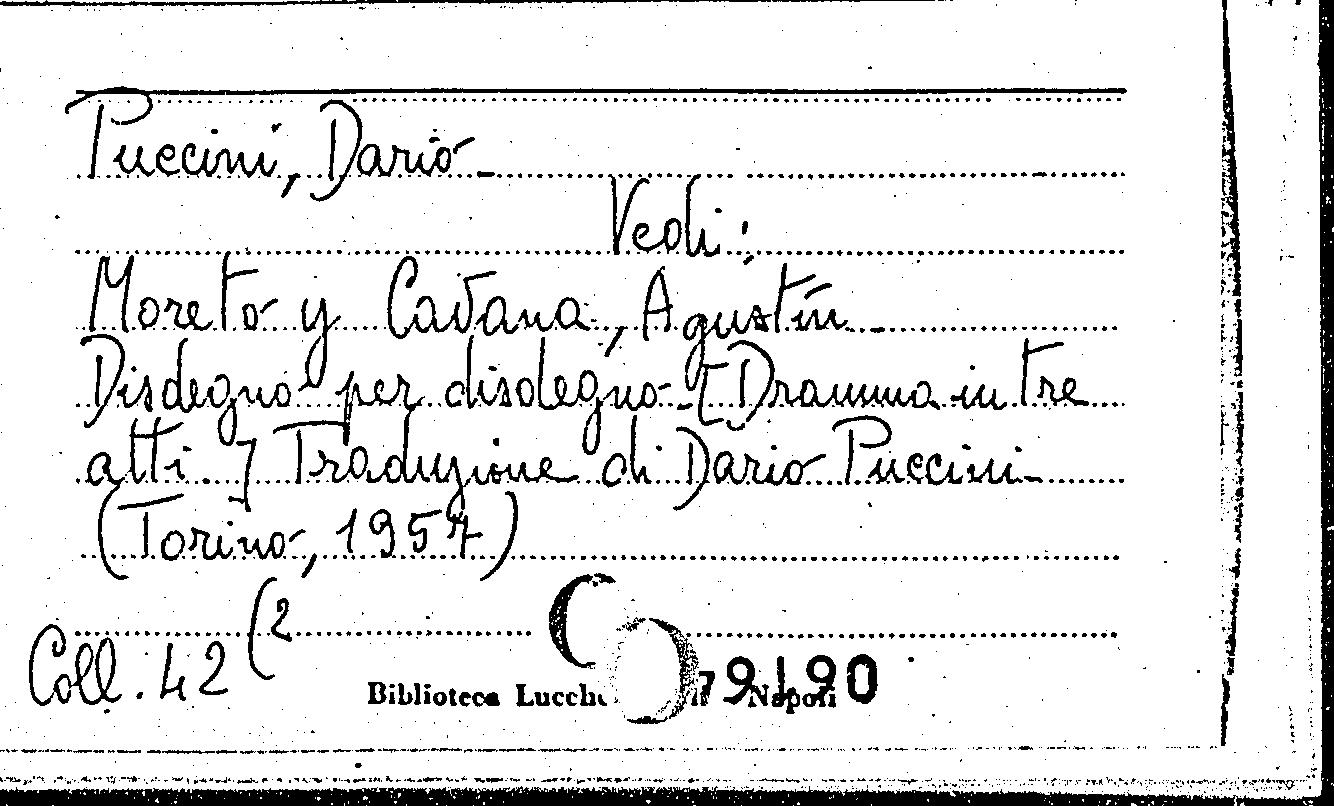 Puccini, Dario
Vedi:
Moreto y Cavana, Agustín
Disdegno per disdegno [Dramma in tre
atti.] Traduzione di Dario Puccini
(Torino, 1957)
Coll. 42 (2
Biblioteca Napoli 79190